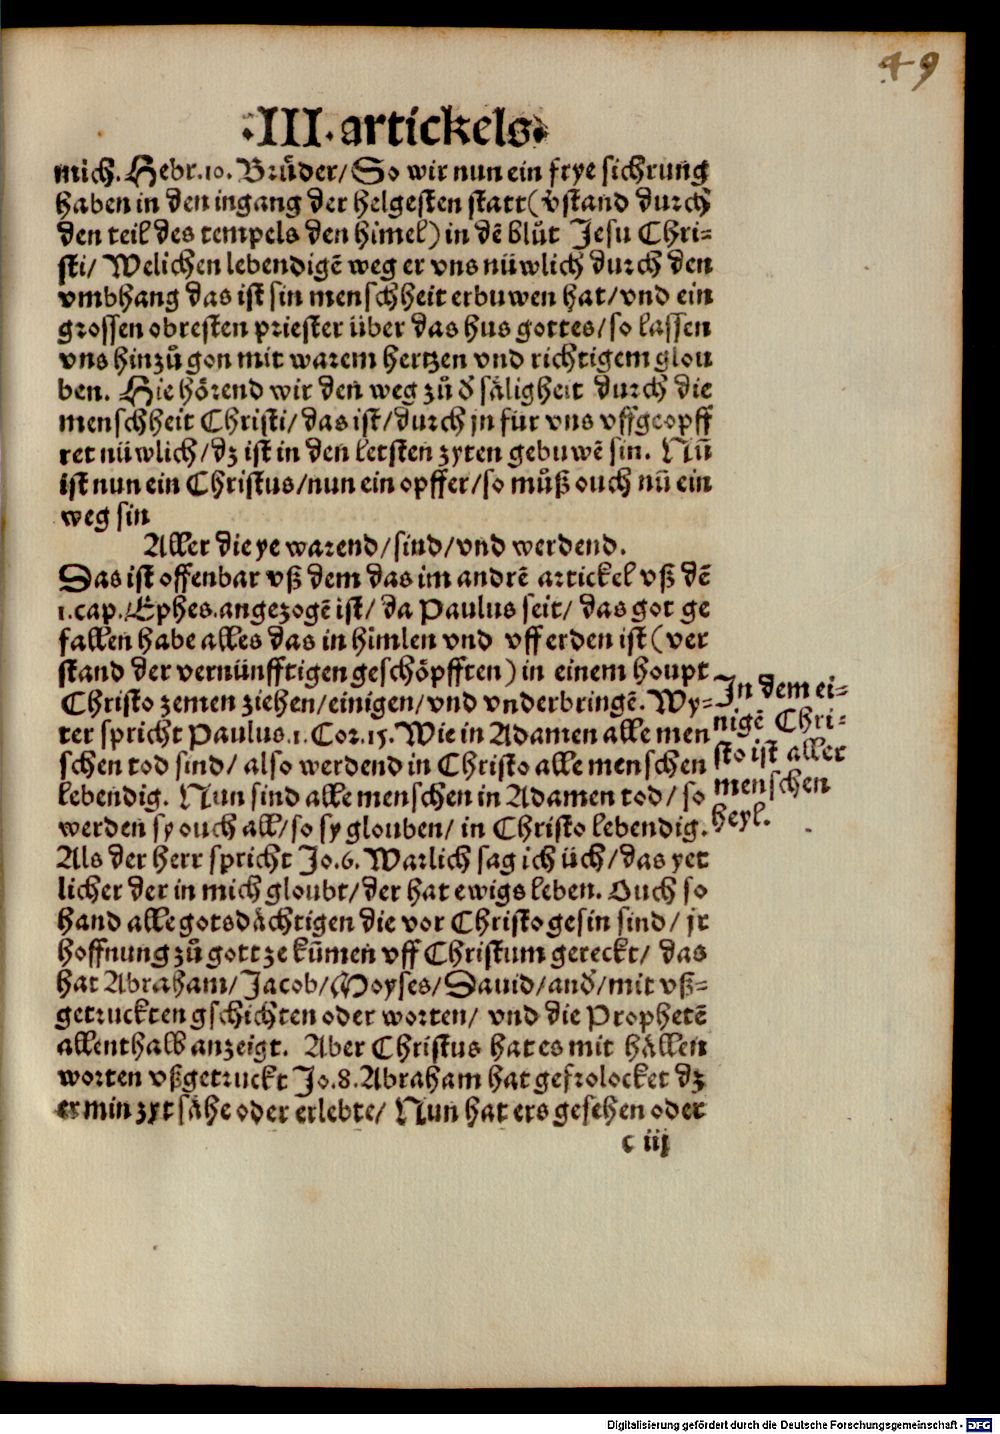 49
·III· artickels·
mich. Hebr.10. Bruͤder/ So wir nun ein frye sichrung
haben in den ingang der helgesten statt (vstand durch
den teil des tempels den himel) in dē bluͦt Jesu Chri⸗
sti/ Welichen lebendigē weg er vns nüwlich durch den
vmbhang das ist sin menschheit erbuwen hat/ vnd ein
grossen obresten priester über das hus gottes/ so lassen
vns hinzuͦ gon mit warem hertzen vnd richtigem glou
ben. Hie hoͤrend wir den weg zuͦ d̕ saͤligheit durch die
menschheit Christi/ das ist/ durch jn für vns vffgeopff
ret nüwlich/ dz ist in den letsten zyten gebuwē sin. Nū
ist nun ein Christus/ nun ein opffer/ so muͦß ouch nū ein
weg sin
Aller die ye warend/ sind/ vnd werdend.
Das ist offenbar vß dem das im andrē artickel vß dē
1.cap. Ephes. angezogē ist/ da Paulus seit/ das got ge
fallen habe alles das in himlen vnd vff erden ist (ver
stand der vernünfftigen geschoͤpfften) in einem houpt
Christo zemen ziehen/ einigen/ vnd vnderbringē. Wy⸗
ter spricht Paulus.1. Cor.15. Wie in Adamen alle men
schen tod sind/ also werdend in Christo alle menschen
lebendig. Nun sind alle menschen in Adamen tod/ so
werden sy ouch all/ so sy glouben/ in Christo lebendig.
In dem ei⸗
nigē Chri⸗
sto ist aller
menschen
heyl.
Als der herr spricht Jo.6. Warlich sag ich üch/ das yet
licher der in mich gloubt/ der hat ewigs leben. Ouch so
hand alle gotsdaͤchtigen die vor Christo gesin sind/ jr
hoffnung zuͦ gott ze kūmen vff Christum gereckt/ das
hat Abraham/ Jacob/ Moyses/ Dauid/ and̕/ mit vß⸗
getruckten gschichten oder worten/ vnd die Prophetē
allenthalb anzeigt. Aber Christus hat es mit haͤllen
worten vßgetruckt Jo.8. Abraham hat gefrolocket dz
er min zyt saͤhe oder erlebte/ Nun hat ers gesehen oder
c iij
Digitalisierung gefördert durch die Deutsche Forschungsgemeinschaft - DFG